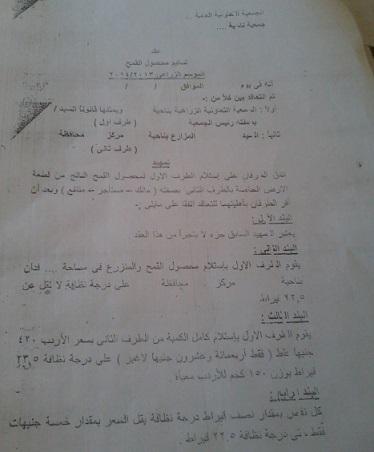 الجمعية التعاونية العامة ..
جمعية ناحية ....
عقد
تسليم محصول القمح
الموسم الزراعى ٢٠١٤/٢٠١٣
انه فى يوم الموافق / /
تم التعاقد بين كلا من :-
الجمعية التعاونية الزراعية بناحية ويمثلها قانونا السيد /
بصفته رئيس الجمعية ( طرف اول )
ثانيا : السيد المزارع بناحية مركز محافظة
( طرف ثانى )
تمهيد
اتفق الطرفان على إستلام الطرف الاول لمحصول القمح الناتج من قطعة
الارض الخاصة بالطرف الثانى بصفته ( مالك – مستأجر – منتفع ) وبعد أن
أقر الطرفان بأهليتهما للتعاقد اتفقا على مايلى :-
البند الأول :
يعتبر التمهيد السابق جزء لا يتجزأ من هذا العقد
البند الثانى :
يقوم الطرف الاول بإستلام محصول القمح والمنزرع فى مساحة .... فدان
ناحية مركز محافظة على درجة نظافة لا تقل عن
٢٢,٥ قيراط
البند الثالث :
يقوم الطرف الاول بإستلام كامل الكمية من الطرف الثانى بسعر الأردب ٤٢٠
جنيها فقط ( فقط أربعمائة وعشرون جنيها لاغير ) على درجة نظافة ٢٣,٥
قيراط بوزن ١٥٠ كجم للأردب معبأه
البند الرابع :
كل نقص بمقدار نصف قيراط درجة نظافة يقل السعر بمقدار خمسة جنيهات
فقط حتى درجة نظافة ٢٢,٥ قيراط .